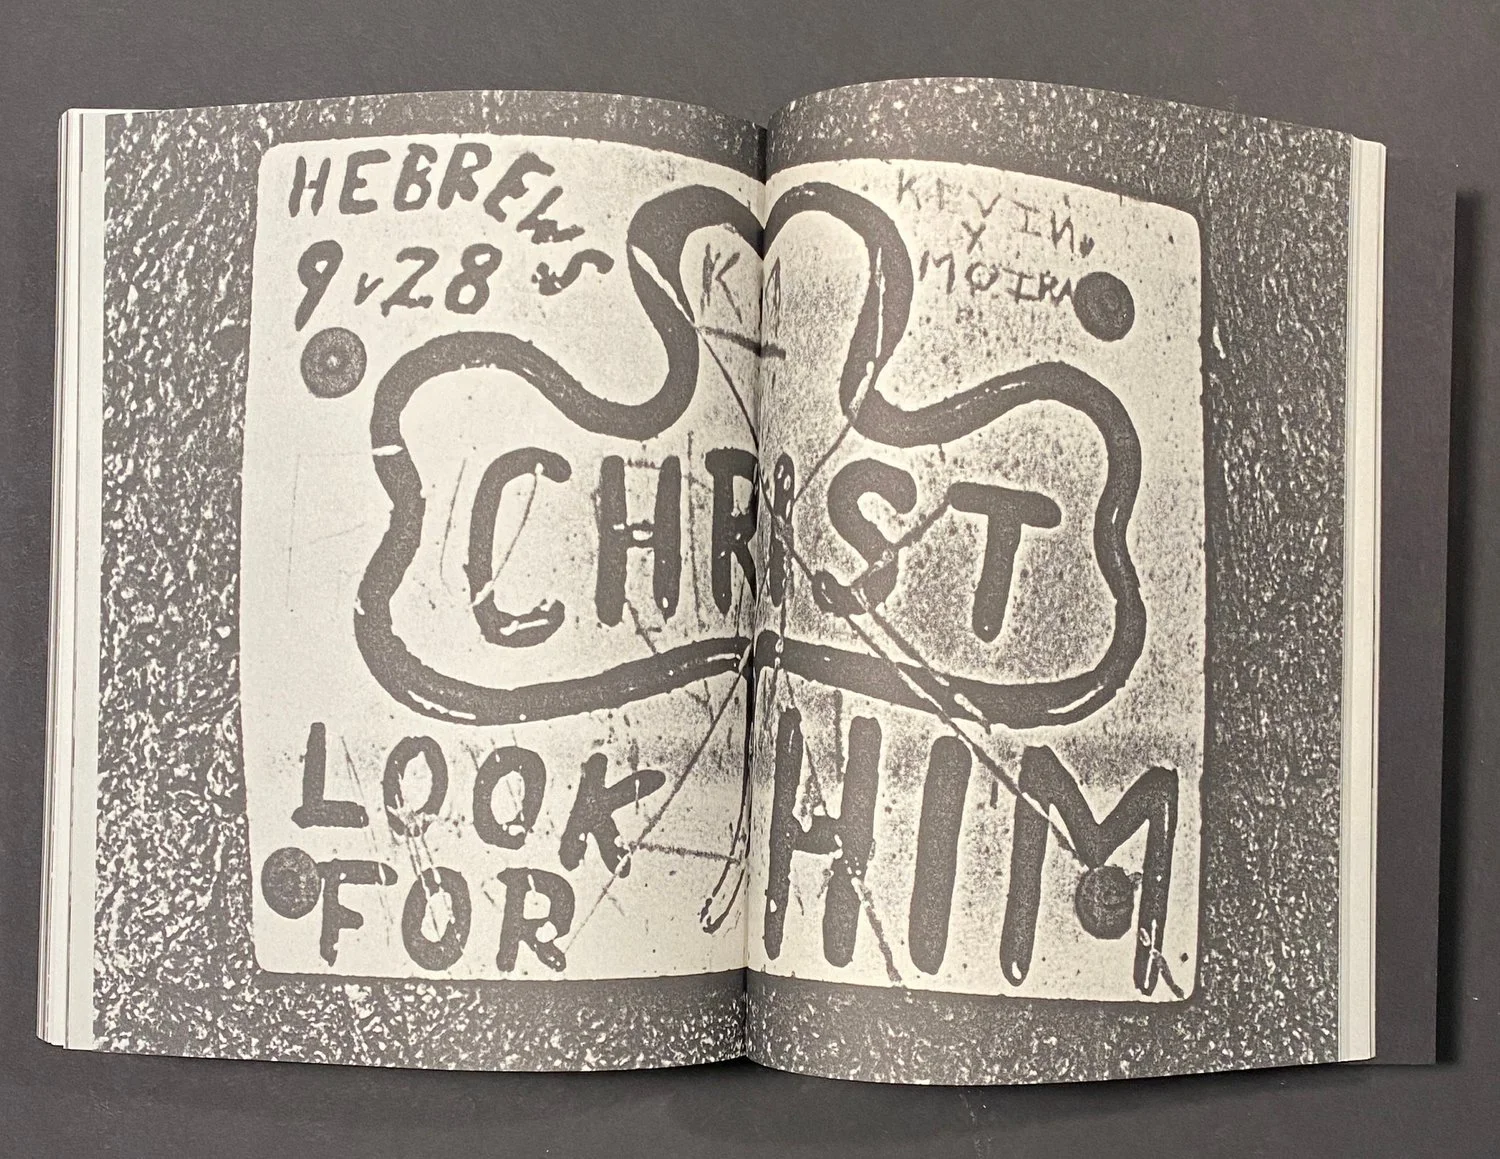 HEBREWS
9 v 28
KEVIN
X
MOIRA
K
CHRIST
LOOK
FOR
HIM